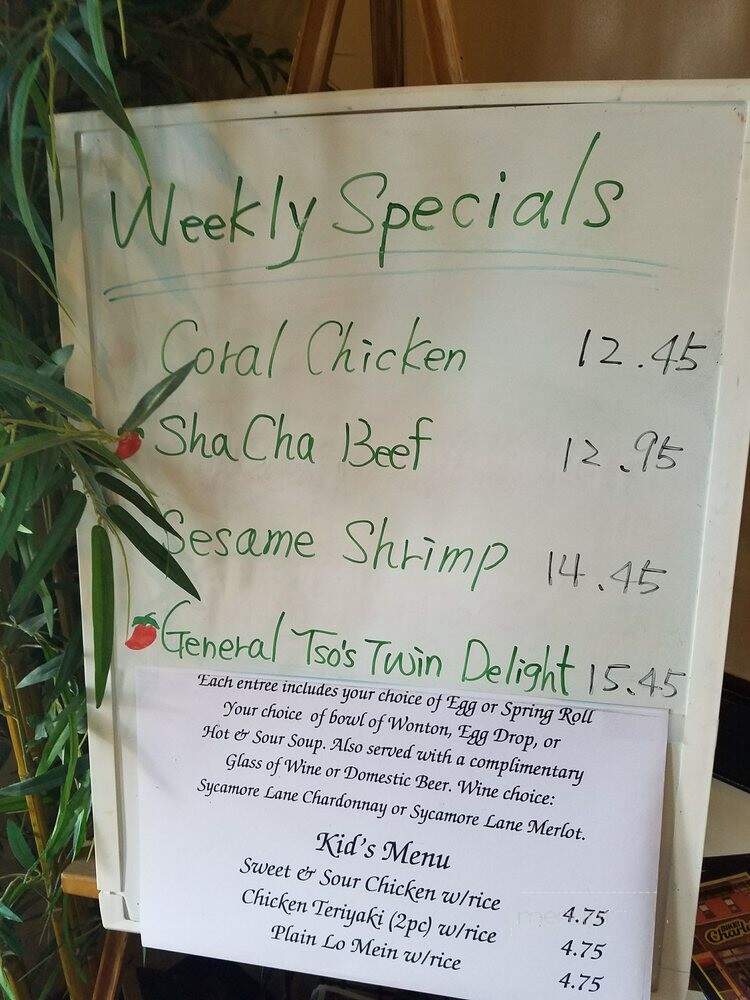 Weekly Specials
Coral Chicken 12.45
Sha Cha Beef 12.95
Sesame Shrimp 14.45
General Tso's Twin Delight 15.45
Each entree includes your choice of Egg or Spring Roll
Your choice of bowl of Wonton, Egg Drop, or
Hot & Sour Soup. Also served with a complimentary
Glass of Wine or Domestic Beer. Wine choice:
Sycamore Lane Chardonnay or Sycamore Lane Merlot.
Kid's Menu
Sweet & Sour Chicken w/rice 4.75
Chicken Teriyaki (2pc) w/rice 4.75
Plain Lo Mein w/rice 4.75